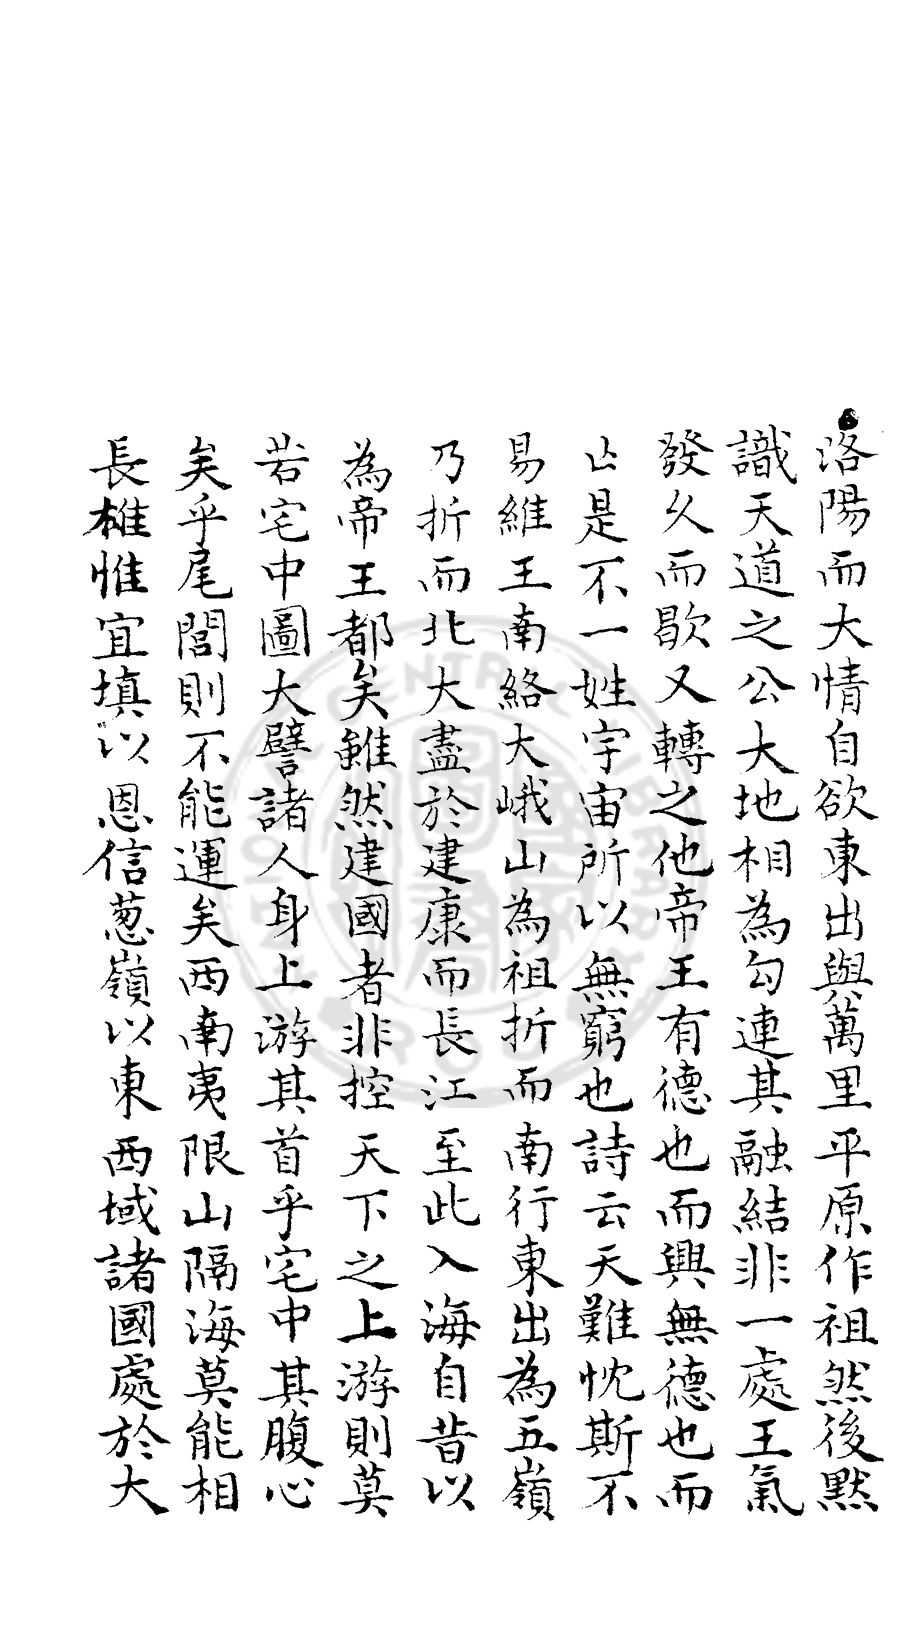 洛陽而大情自欲東出與萬里平原作祖然後默
識天道之公大地相為勾連其融結非一處王氣
發久而歇又轉之他帝王有德也而興無德也而
亾是不一姓宇宙所以無窮也詩云天難忱斯不
易維王南絡大峨山為祖折而南行東出為五嶺
乃折而北大盡於建康而長江至此入海自昔以
為帝王都矣雖然建國者非控天下之上游則莫
若宅中圖大譬諸人身上游其首乎宅中其腹心
矣乎尾閭則不能運矣西南夷限山隔海莫能相
長雄惟宜填以恩信葱嶺以東西域諸國處於大
CENTRAL LIBRARY